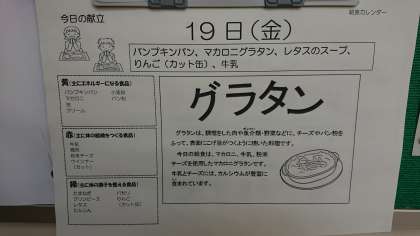 給食カレンダー
今日の献立
19日(金)
パンプキンパン、マカロニグラタン、レタスのスープ、
りんご(カット缶)、牛乳
黄(主にエネルギーになる食品)
パンプキンパン 小麦粉
マカロニ パン粉
油
クリーム
赤(主に体の組織をつくる食品)
牛乳
鶏肉
粉末チーズ
ウインナー
(カット)
緑(主に体の調子を整える食品)
たまねぎ パセリ
グリンピース りんご
レタス (カット缶)
にんじん
グラタン
グラタンは、調理をした肉や魚介類・野菜などに、チーズやパン粉を
ふって、表面にこげ目がつくように焼いた料理です。
今日の給食は、マカロニ、牛乳、粉末
チーズを使用したマカロニグラタンです。
牛乳とチーズには、カルシウムが豊富に
含まれています。